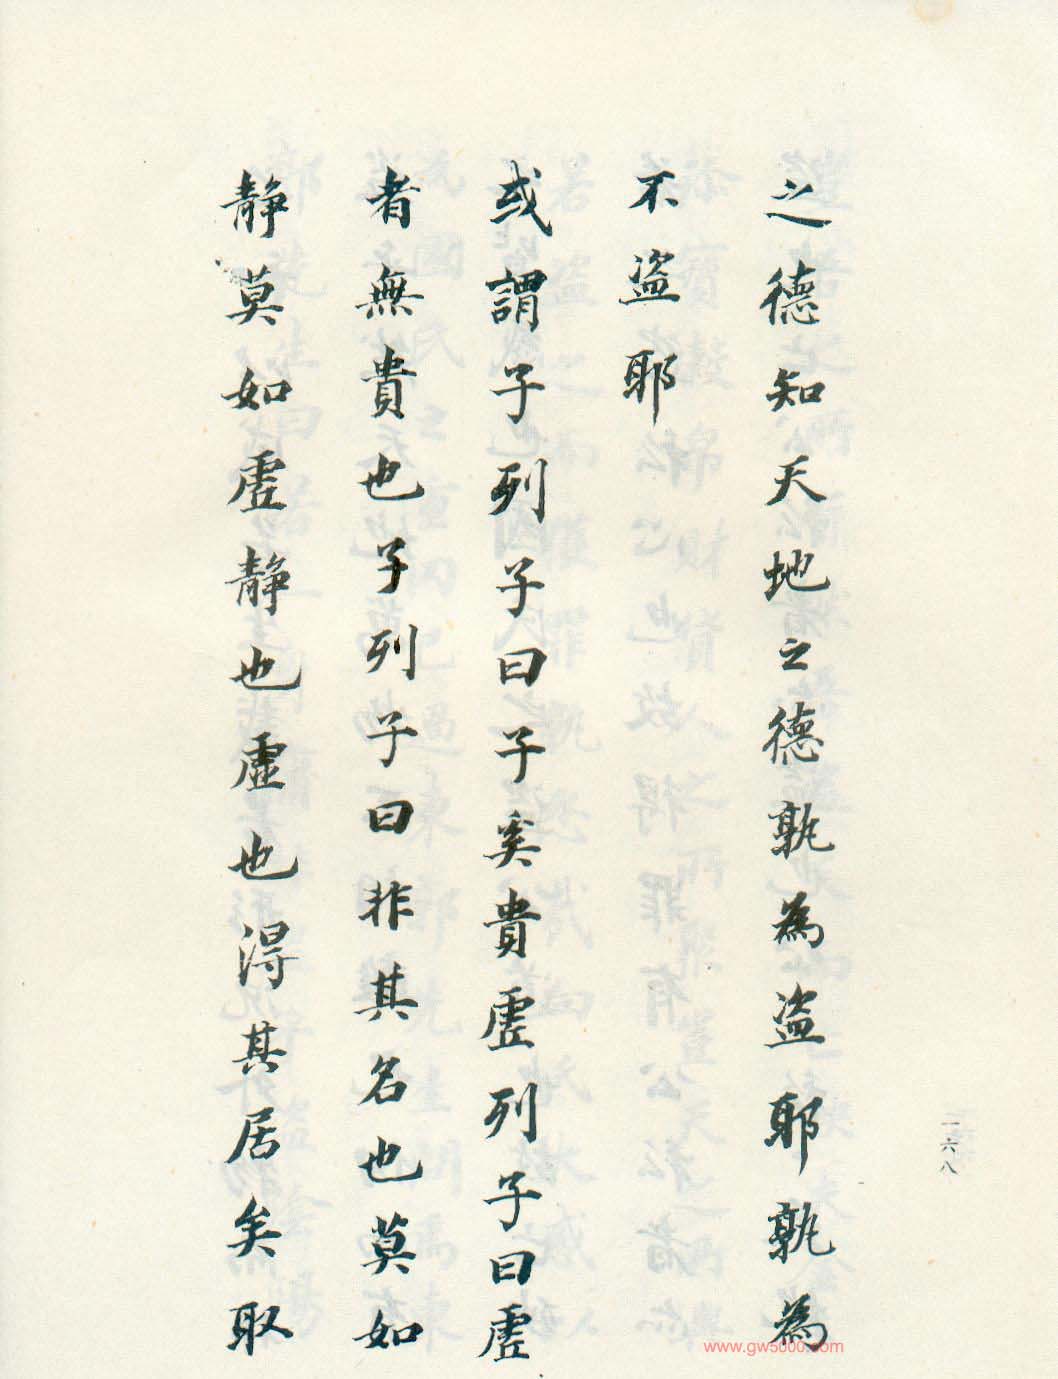 之德知天地之德孰為盜耶孰為
不盜耶
或謂子列子曰子奚貴虛列子曰虛
者無貴也子列子曰非其名也莫如
靜莫如虛靜也虛也得其居矣取
一六八
www.gw5000.com